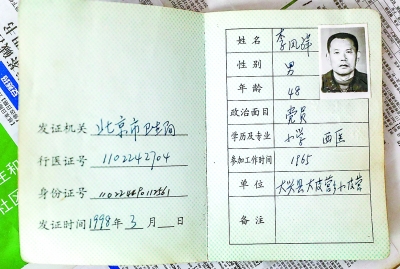 发证机关 北京市卫生局
行医证号 1102242904
身份证号
发证时间 1998年3月 日
姓名 李凤泽
性别 男
年龄 48
政治面目 党员
学历及专业 小学 西医
参加工作时间 1965
单位 大兴县大皮营乡小皮营
备注